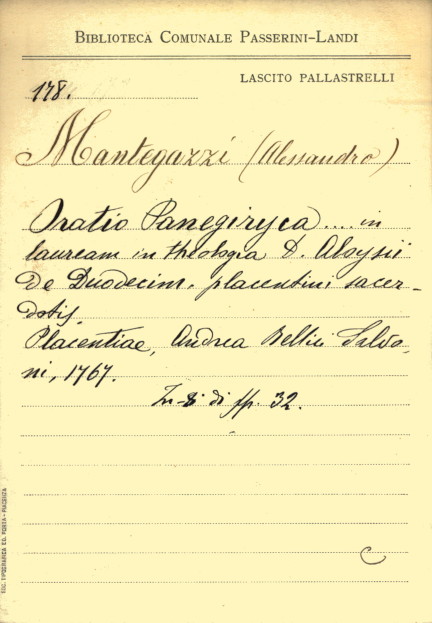 BIBLIOTECA COMUNALE PASSERINI-LANDI
LASCITO PALLASTRELLI
178.
Mantegazzi (Alessandro)
Oratio Panegiryca .... in
lauream in theologia D. Aloysii
De Duodecim. placentini sacer-
dotis
Placentiae, Andrea Bellici Salvo-
ni, 1767.
In-8 di pp. 32.
C
SOC. TIPOGRAFICA ED. PORTA - PIACENZA